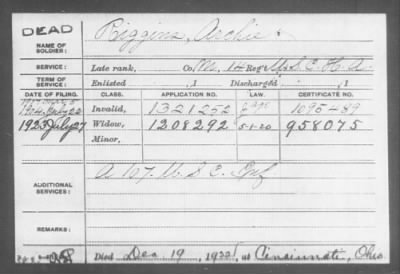 DEAD
NAME OF SOLDIER: Riggins, Archie
SERVICE: Late rank, Co. M, 14 Reg't U.S.C.H.A.
TERM OF SERVICE: Enlisted , 1 Discharged , 1
DATE OF FILING. CLASS. APPLICATION NO. LAW. CERTIFICATE NO.
1904 July 22 Invalid, 1321252 1095489
1923 July 27 Widow, 1208292 5-1-20 958075
Minor,
ADDITIONAL SERVICES: A 107 U.S.C. Inf
REMARKS:
Died Dec 19, 1922, at Cincinnati, Ohio